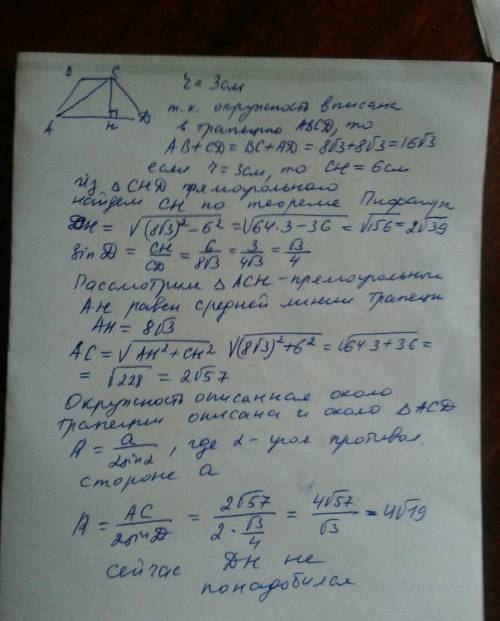 B C
A H D
r = 3см
т.к. окружность вписана
в трапецию ABCD, то
AB+CD = BC+AD = 8√3+8√3=16√3
если r=3см, то CH=6см
Из △CHD прямоугольного
найдем CH по теореме Пифагора
DH = √(8√3)²-6² = √64·3-36 = √156 = 2√39
sin D = CH/CD = 6/8√3 = 3/4√3 = √3/4
Рассмотрим △ACH-прямоугольный
AH равен средней линии трапеции
AH = 8√3
AC = √AH²+CH² √(8√3)²+6² = √64·3+36 =
= √228 = 2√57
Окружность описанная около
трапеции описана и около △ACD
R = a/2sinα, где α - угол противол.
стороне a
R = AC/2sinD = 2√57/2·√3/4 = 4√57/√3 = 4√19
сейчас DH не
понадобился